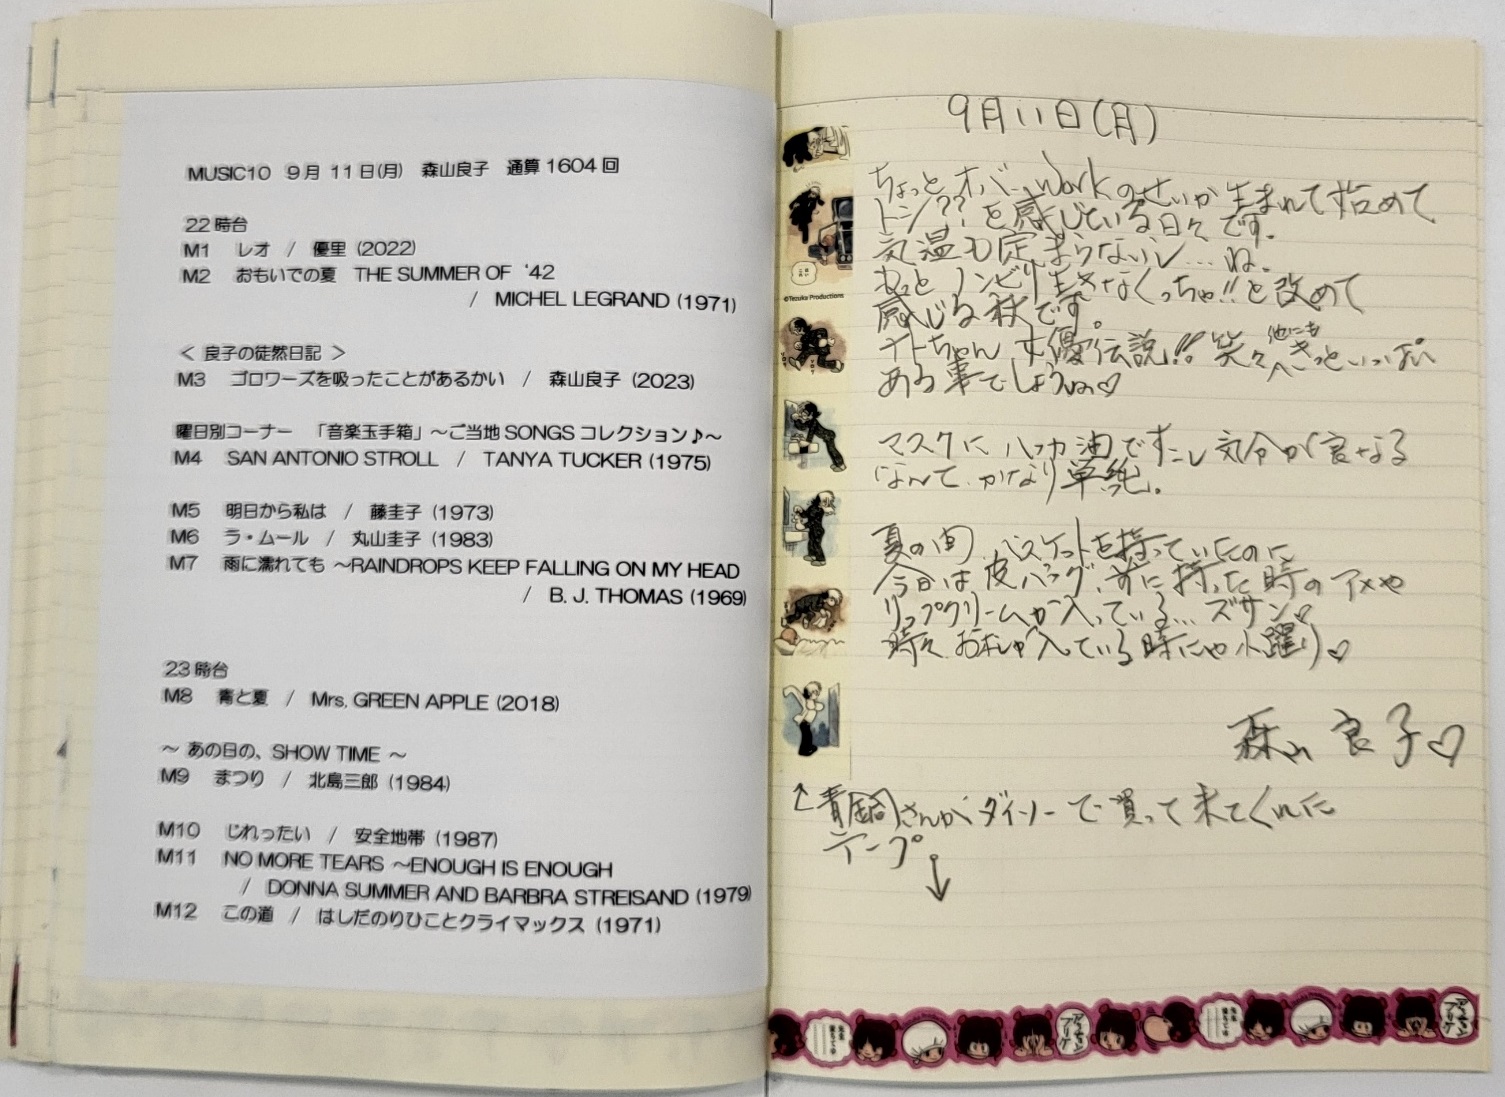 MUSIC10 9月 11日(月) 森山良子 通算1604回
22時台
M1 レオ / 優里 (2022)
M2 おもいでの夏 THE SUMMER OF '42
/ MICHEL LEGRAND (1971)
< 良子の徒然日記 >
M3 ゴロワーズを吸ったことがあるかい / 森山良子 (2023)
曜日別コーナー 「音楽玉手箱」～ご当地SONGSコレクション♪～
M4 SAN ANTONIO STROLL / TANYA TUCKER (1975)
M5 明日から私は / 藤圭子 (1973)
M6 ラ・ムール / 丸山圭子 (1983)
M7 雨に濡れても ～RAINDROPS KEEP FALLING ON MY HEAD
/ B. J. THOMAS (1969)
23時台
M8 青と夏 / Mrs. GREEN APPLE (2018)
～ あの日の、SHOW TIME ～
M9 まつり / 北島三郎 (1984)
M10 じれったい / 安全地帯 (1987)
M11 NO MORE TEARS ～ENOUGH IS ENOUGH
/ DONNA SUMMER AND BARBRA STREISAND (1979)
M12 この道 / はしだのりひことクライマックス (1971)
9月11日(月)
ちょっとオーバーworkのせいか生まれて始めて
トン??を感じている日々です。
気温も定まらないし…ね。
もっとノンビリ生きなくっちゃ!!と改めて
感じる秋です。
ナトちゃん 女優伝説!! 笑々 他にもきっといっぱい
ある事でしょうね♡
マスクにハッカ油ですこし気分が良くなる
なんて、かなり単純。
夏の間、バスケットを持っていたのに
今日は皮バッグ、前に持った時のアメや
リップクリームが入っている…ズサン♡
時々、お札が入っている時にゃ小躍り♡
森山良子♡
↑青
さんがダイソーで買って来てくれた
テープ
↓
©Tezuka Productions
アラマンチュ
ブリケ